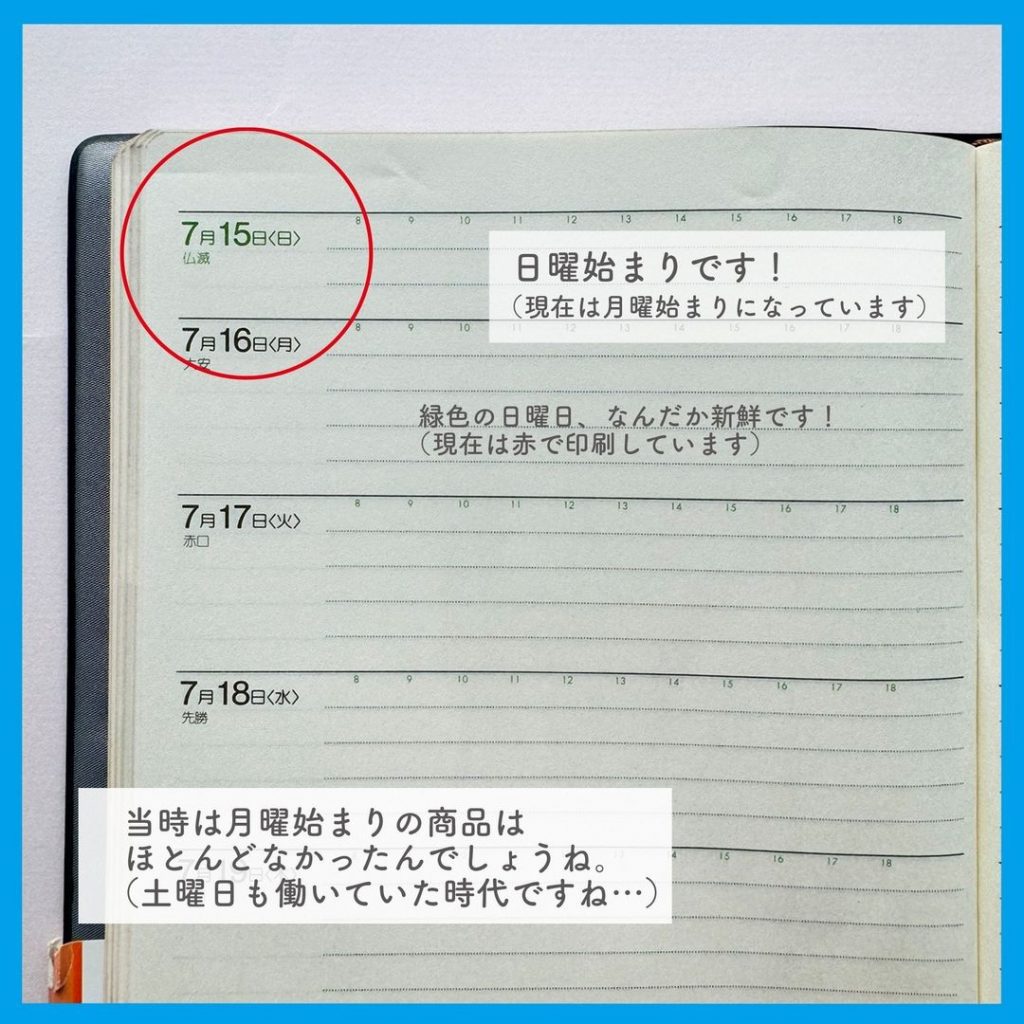 7月15日〈日〉
仏滅
8 9 10 11 12 13 14 15 16 17 18
日曜始まりです！
（現在は月曜始まりになっています）
7月16日〈月〉
大安
8 9 10 11 12 13 17 18
緑色の日曜日、なんだか新鮮です！
（現在は赤で印刷しています）
7月17日〈火〉
赤口
8 9 10 11 12 13 14 15 16 17 18
7月18日〈水〉
先勝
8 9 10 11 12 13 14 15 16 17 18
当時は月曜始まりの商品は
ほとんどなかったんでしょうね。
（土曜日も働いていた時代ですね…）
7月19日
13 14 15 16 17 18